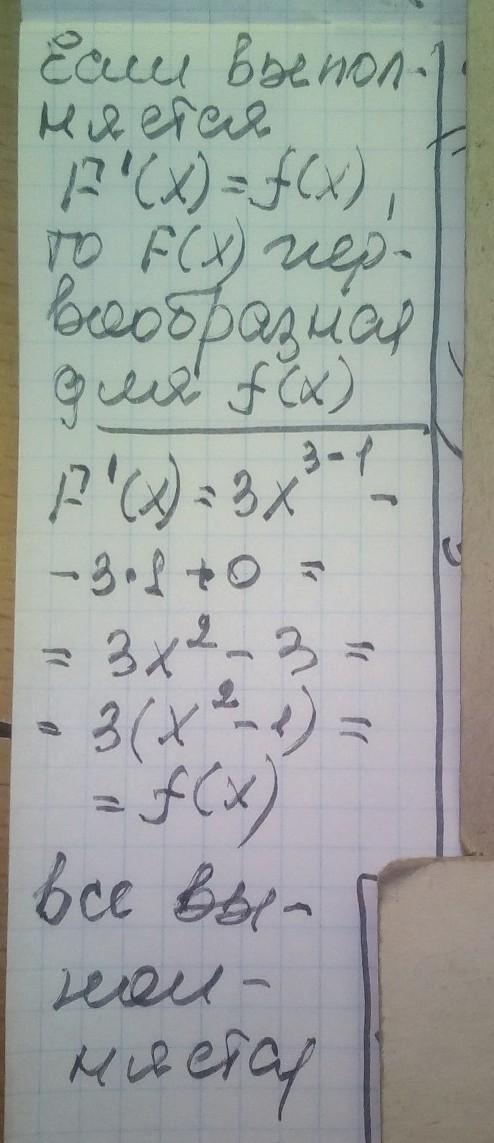 Если выпол-
няется
F'(x) = f(x),
то F(x) пер-
вообразная
для f(x)
F'(x) = 3x³⁻¹ -
- 3·1 + 0 =
= 3x² - 3 =
= 3(x² - 1) =
= f(x)
все вы-
пол-
няется